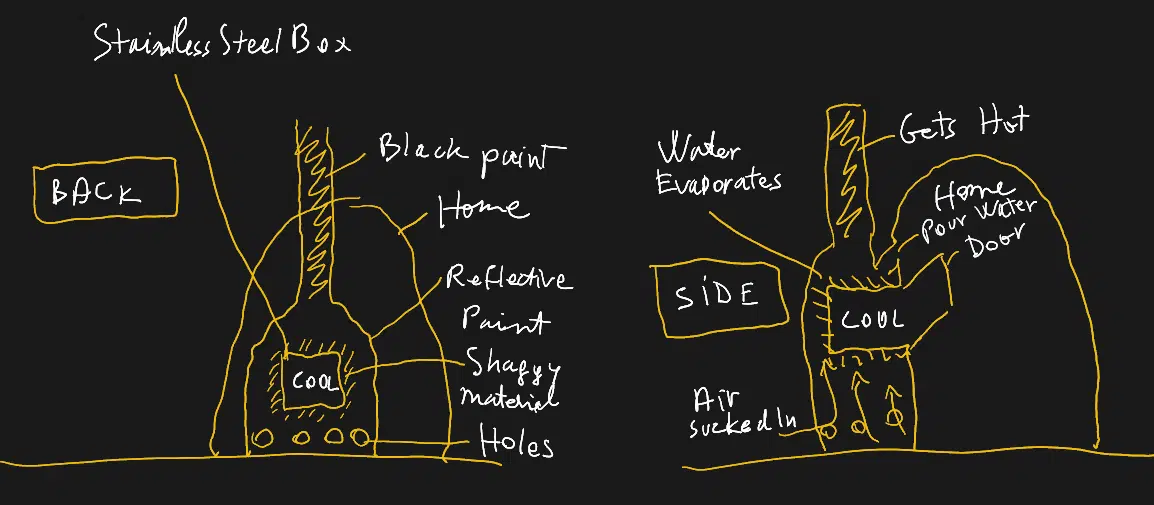 Stainless Steel Box
BACK
Black paint
Home
Reflective
Paint
Shaggy
material
COOL
Holes
Gets Hot
Water
Evaporates
Home
Pour Water
Door
SiDE
COOL
Air
sucked In